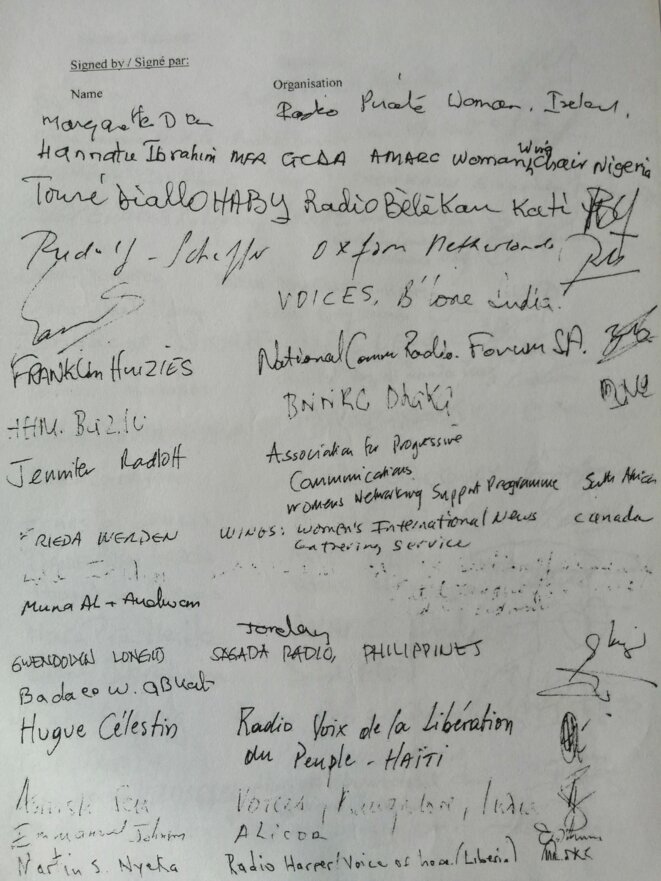 Signed by / Signé par:
Name Organisation
Margaretta D Radio Pirate Woman, Ireland,
Hannatu Ibrahim MFR GCDA AMARC Woman Wing Chair Nigeria
Touré Diallo HABY Radio Bèlèkan Kati
Rudolf Scheffer Oxfam Netherlands
VOICES, B'lore India.
FRANKLIN HUIZIES National Comm Radio. Forum SA.
BNNRC Dhaka
AHM. Bazlu
Jennifer Radloff Association for Progressive
Communications
Womens Networking Support Programme South Africa
FRIEDA WERDEN WINGS: Women's International News canada
Gathering Service
Muna AL
Jordan
GWENDOLYN LONGID SAGADA RADIO, PHILIPPINES
Badaco W.
Hugue Célestin Radio Voix de la Libération
du Peuple - HAÏTI
Ashish Sen Voices, Bangalore, India
Emmanuel
Martin S. Nyeka Radio Harper/Voice of hope (Liberia)